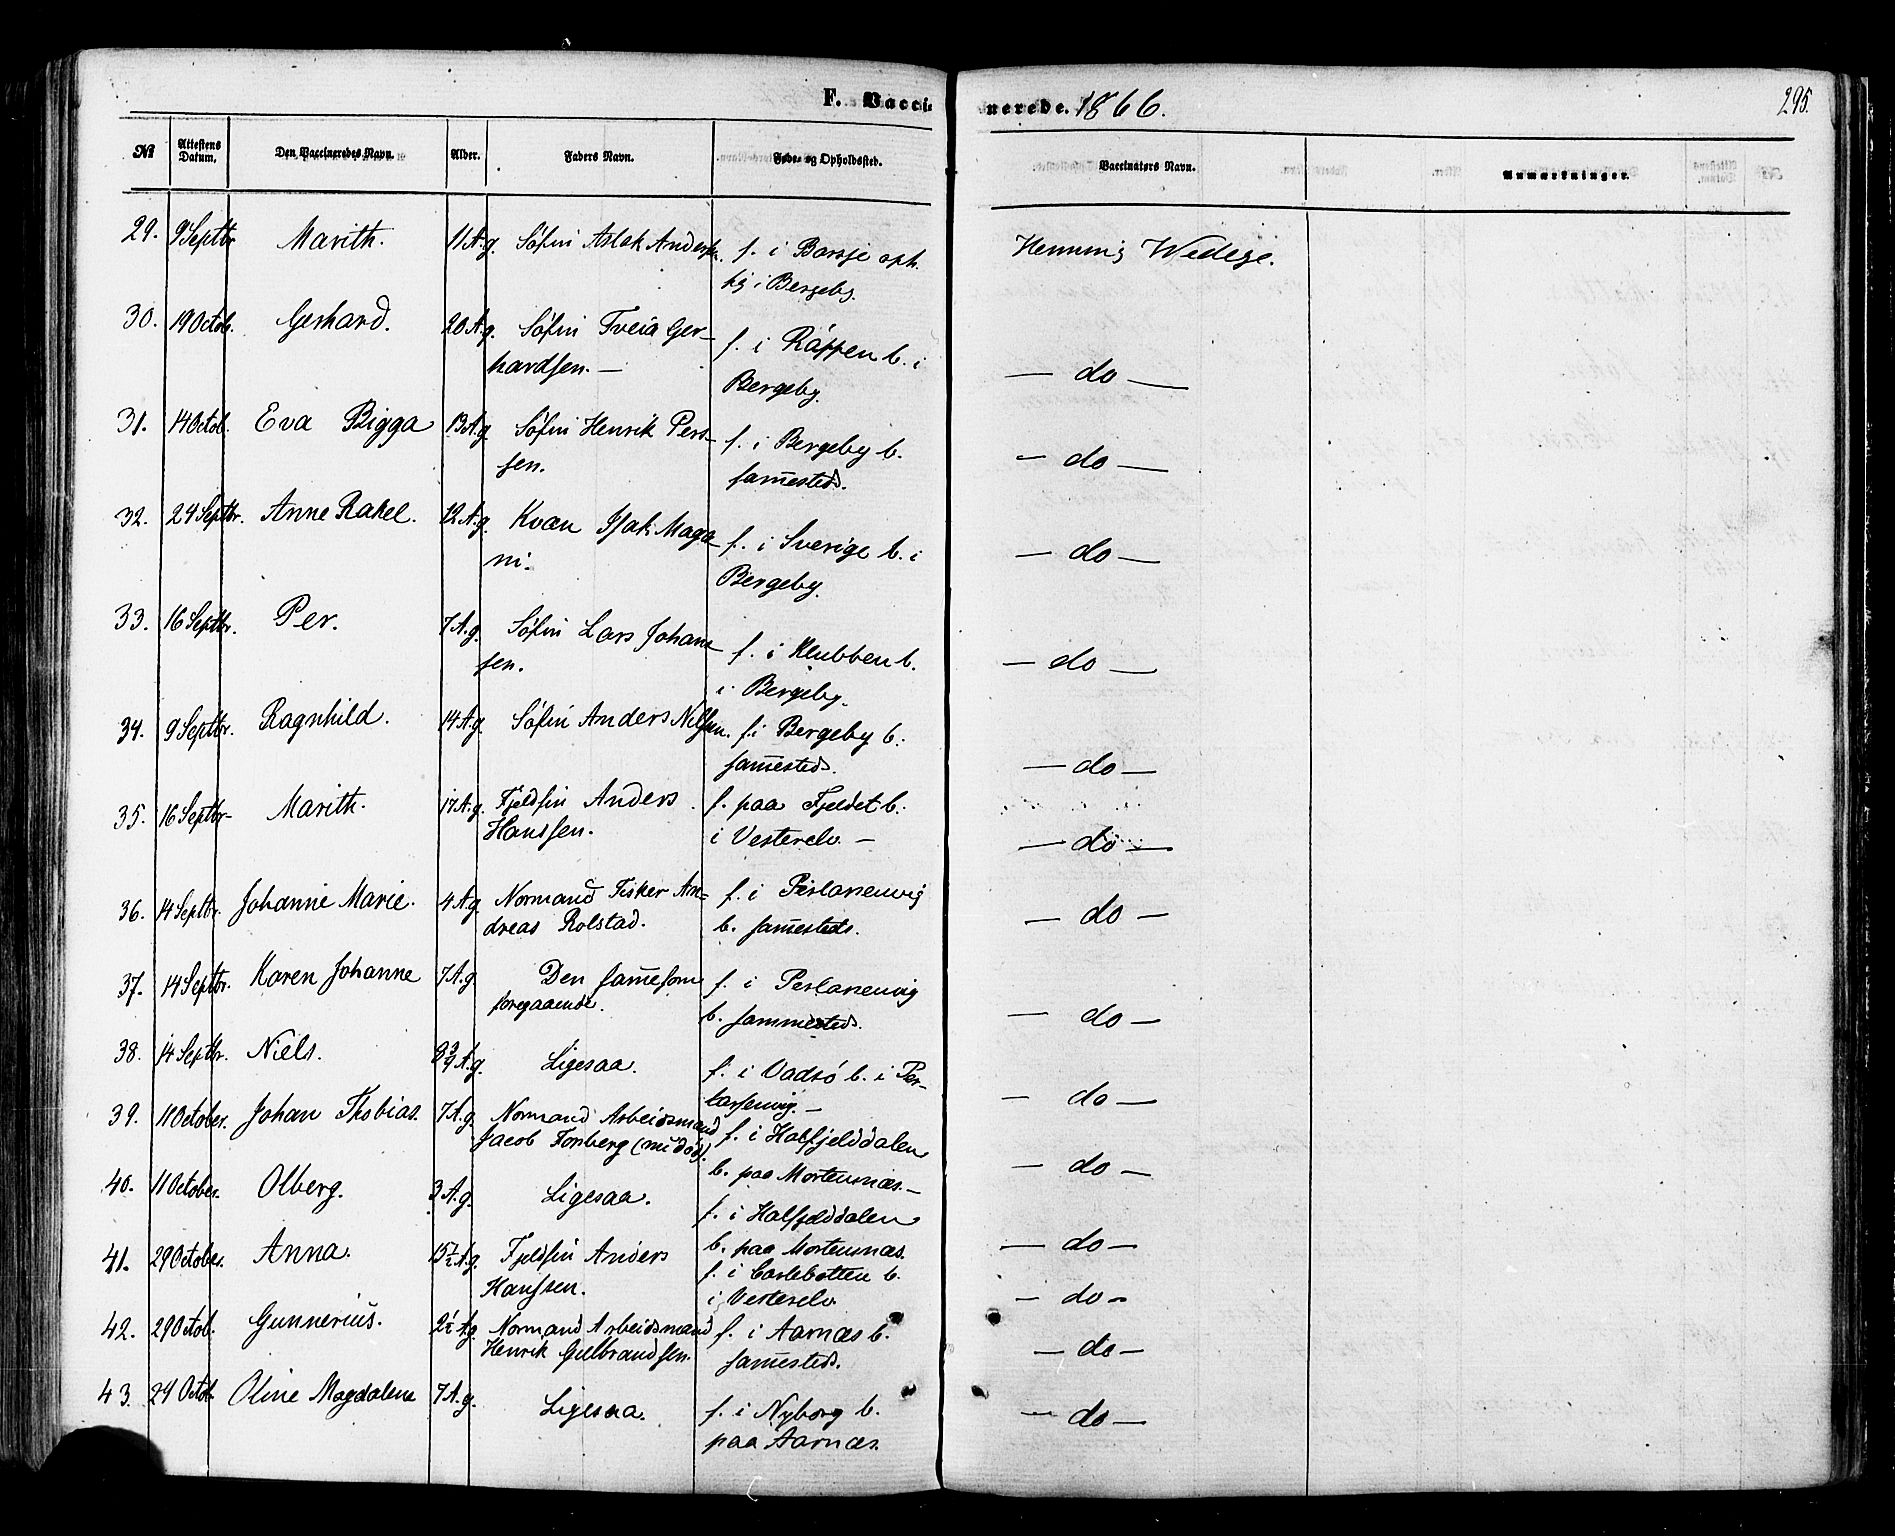 F. Vaccinerede. 1866.
295.
№ Attestens Datum. Den Vaccineredes Navn. Alder. Faders Navn. Føde- og Opholdssted. Vaccinators Navn. Anmærkninger.
29. 9 Septbr. Marith. 11 A. g. Søfin Aslak Andersen. f. i Barsje oph.
sig i Bergeby. Henning Wedege.
30. 19 Octob. Gerhard. 20 A. g. Søfin Tveia Ger-
hardsen. — f. i Ráppen b. i
Bergeby. — do —
31. 14 Octob. Eva Bigga 13 A. g. Søfin Henrik Pers-
sen. f. i Bergeby b.
sam̅esteds. — do —
32. 24 Septbr. Anne Rakel. 12 A. g. Kvæn Isak Maga-
ni. f. i Sverige b. i
Bergeby. — do —
33. 16 Septbr. Per. 7 A. g. Søfin Lars Johan-
sen. f. i Klubben b.
i Bergeby. — do —
34. 9 Septbr. Ragnhild. 14 A. g. Søfin Anders Nilsen. f. i Bergeby b.
sam̅esteds. — do —
35. 16 Septbr. Marith. 17 A. g. Fjeldfin Anders
Hanssen. f. paa Fjeldet b.
i Vesterelv. — — do —
36. 14 Septbr. Johanne Marie. 4 A. g. Normand Fisker An-
dreas Rolstad. f. i
b. sam̅esteds. — do —
37. 14 Septbr. Karen Johanne 7 A. g. Den sam̅e som
foregaaende. f. i
b. sammesteds. — do —
38. 14 Septbr. Niels. A. g. Ligesaa. f. i Vadsö b. i Per-
larsenvig. — — do —
39. 11 October. Johan Thobias. 7 A. g. Normand Arbeidsmand
Jacob Forsberg (nu død). f. i Halfjelddalen
b. paa Mortensnæs. — — do —
40. 11 October. Olberg. 3 A. g. Ligesaa. f. i Halfjelddalen
b. paa Mortensnæs. — do —
41. 29 October. Anna. A. g. Fjeldfin Anders
Hanssen. f. i Carlebotten b.
i Vesterelv. — do —
42. 29 Octob. Gunnerius. 2½ A. g. Normand Arbeidsmand
Henrik Gulbrandsen. f. i Aarnæs b.
sam̅esteds. — do —
43. 29 Octob. Oline Magdalene 7 A. g. Ligesaa. f. i Nyborg b.
paa Aarnæs. — do —